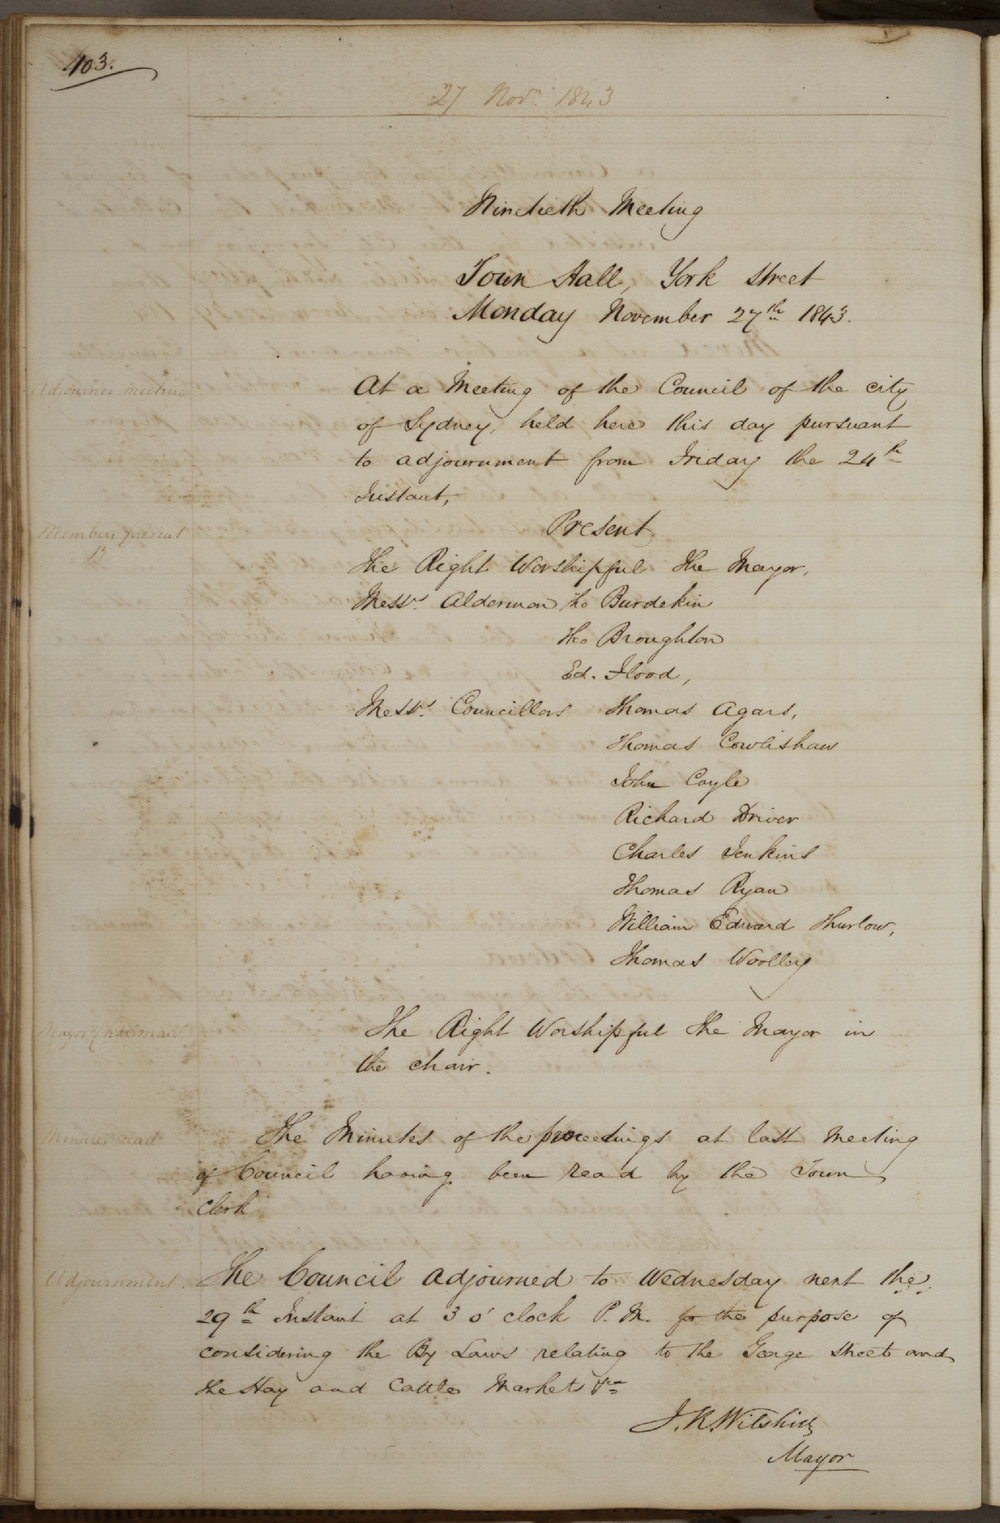 403.
27 Nov. 1843
Ninetieth Meeting
Town Hall, York Street
Monday November 27th 1843.
Adjourned meeting
At a Meeting of the Council of the city
of Sydney, held here this day pursuant
to adjournment from Friday the 24th
Instant,
Members present
Present
The Right Worshipful The Mayor,
Messrs. Aldermon Tho Burdekin
Tho Broughton
Ed. Flood,
Messrs. Councillors Thomas Agars,
Thomas Cowlishaw
John Coyle
Richard Driver
Charles Jenkins
Thomas Ryan
William Edward Thurlow,
Thomas Woolley
Mayor Chairman
The Right Worshipful The Mayor in
the chair.
Minutes read
The Minutes of the proceedings at last Meeting
of Council having been read by the Town
Clerk
Adjournment.
The Council adjourned to Wednesday next the
29th Instant at 3 o'clock P.M. for the purpose of
considering the By Laws relating to the George Street and
the Hay and Cattle Markets
J.R. Wilshire
Mayor